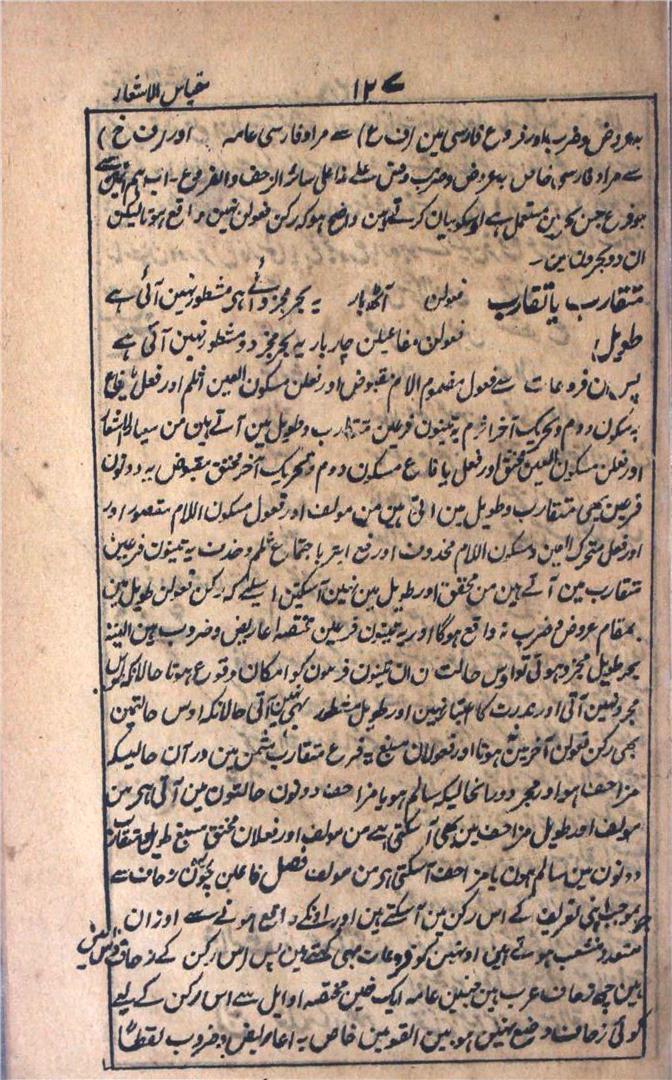 ۱۲۷ مقیاس الاشعار
بہ عروض و ضرب بدور فروع فارسی مین (ف ع) سے مراد فارسی عامہ اور (ف خ)
سے مراد فارسی خاص بہ عروض و ضرب وقس علے ہذا علی سائر الزحف والفروع۔ اب ہم
جو فرع جن بحر مین مستعمل ہے اوسکو بیان کرتے ہین واضح ہو کہ رکن فعولن نہین واقع ہوتا لیکن
ان دو بحرون مین۔
متقارب یا تقارب فعولن آٹھ بار یہ بحر مجزو آئی ہے مشطور نہین آئی ہے
طویل فعولن مفاعیلن چار بار یہ بحر مجزو و مشطور نہین آئی ہے
پس ان فروعات سے فعول مضموم اللام مقبوض اور فعلن مسکون العین اثلم اور فعل یا فاع
بہ سکون دوم و تحریک آخر اثرم یہ تینون فرعین متقارب و طویل مین آتے ہین من معیار الاشعار
اور فعلن مسکون العین مخنق اور فعل یا فاع مسکون دوم و تحریک آخر مخنق مقبوض یہ دونون
فرعین بھی متقارب و طویل مین آتی ہین من مولف اور فعول مسکون اللام مقصور اور
اور فعل متحرک العین و مسکون اللام محذوف اور فع ابتر با جتماع ثلم و حذف یہ تینون فرعین
متقارب مین آتے ہین من محقق اور طویل مین نہین آسکتین اسلیے کہ رکن فعولن طویل مین
بمقام عروض و ضرب نہ واقع ہوگا اور یہ تینون فرعین مختصہ اعاریض و ضروب ہین البتہ
بحر طویل مجزو ہوتی تو اوس حالت مین ان تینون فرعون کو امکان وقوع ہوتا حالانکہ طویل
مجزو نہین آتی اور ندرت کا اعتبار نہین اور طویل مشطور بھی نہین آتی حالانکہ اوس حالتمین
بھی رکن فعولن آخر مین ہوتا اور فعولان مسبغ یہ فرع متقارب مثمن مین در آن حالیکہ
مزاحف ہو اور مجزو درانحالیکہ سالم ہو یا مزاحف دونون حالتون مین آتی ہے من
مولف اور طویل مزاحف مین بھی آسکتی ہے من مولف اور فعلان مخنق مسبغ طویل و متقارب
دونون مین سالم ہون یا مزاحف آسکتی ہے من مولف فصل فاعلن جو زحاف سے
بموجب اپنی تعریف کے اس رکن مین آسکتے ہین اور انکے واقع ہونے سے اوزان
متعدد منشعب ہوتے ہین اونہین کو فروعات بھی کہتے ہین پس اس رکن کے زحاف
ہین چھ زحاف عرب ہین جنمین عامہ ایک خبن مختصہ اوایل سے اس رکن کے لیے
کوئی زحاف وضع نہین ہو بین القومین خاص بہ اعاریض و ضروب